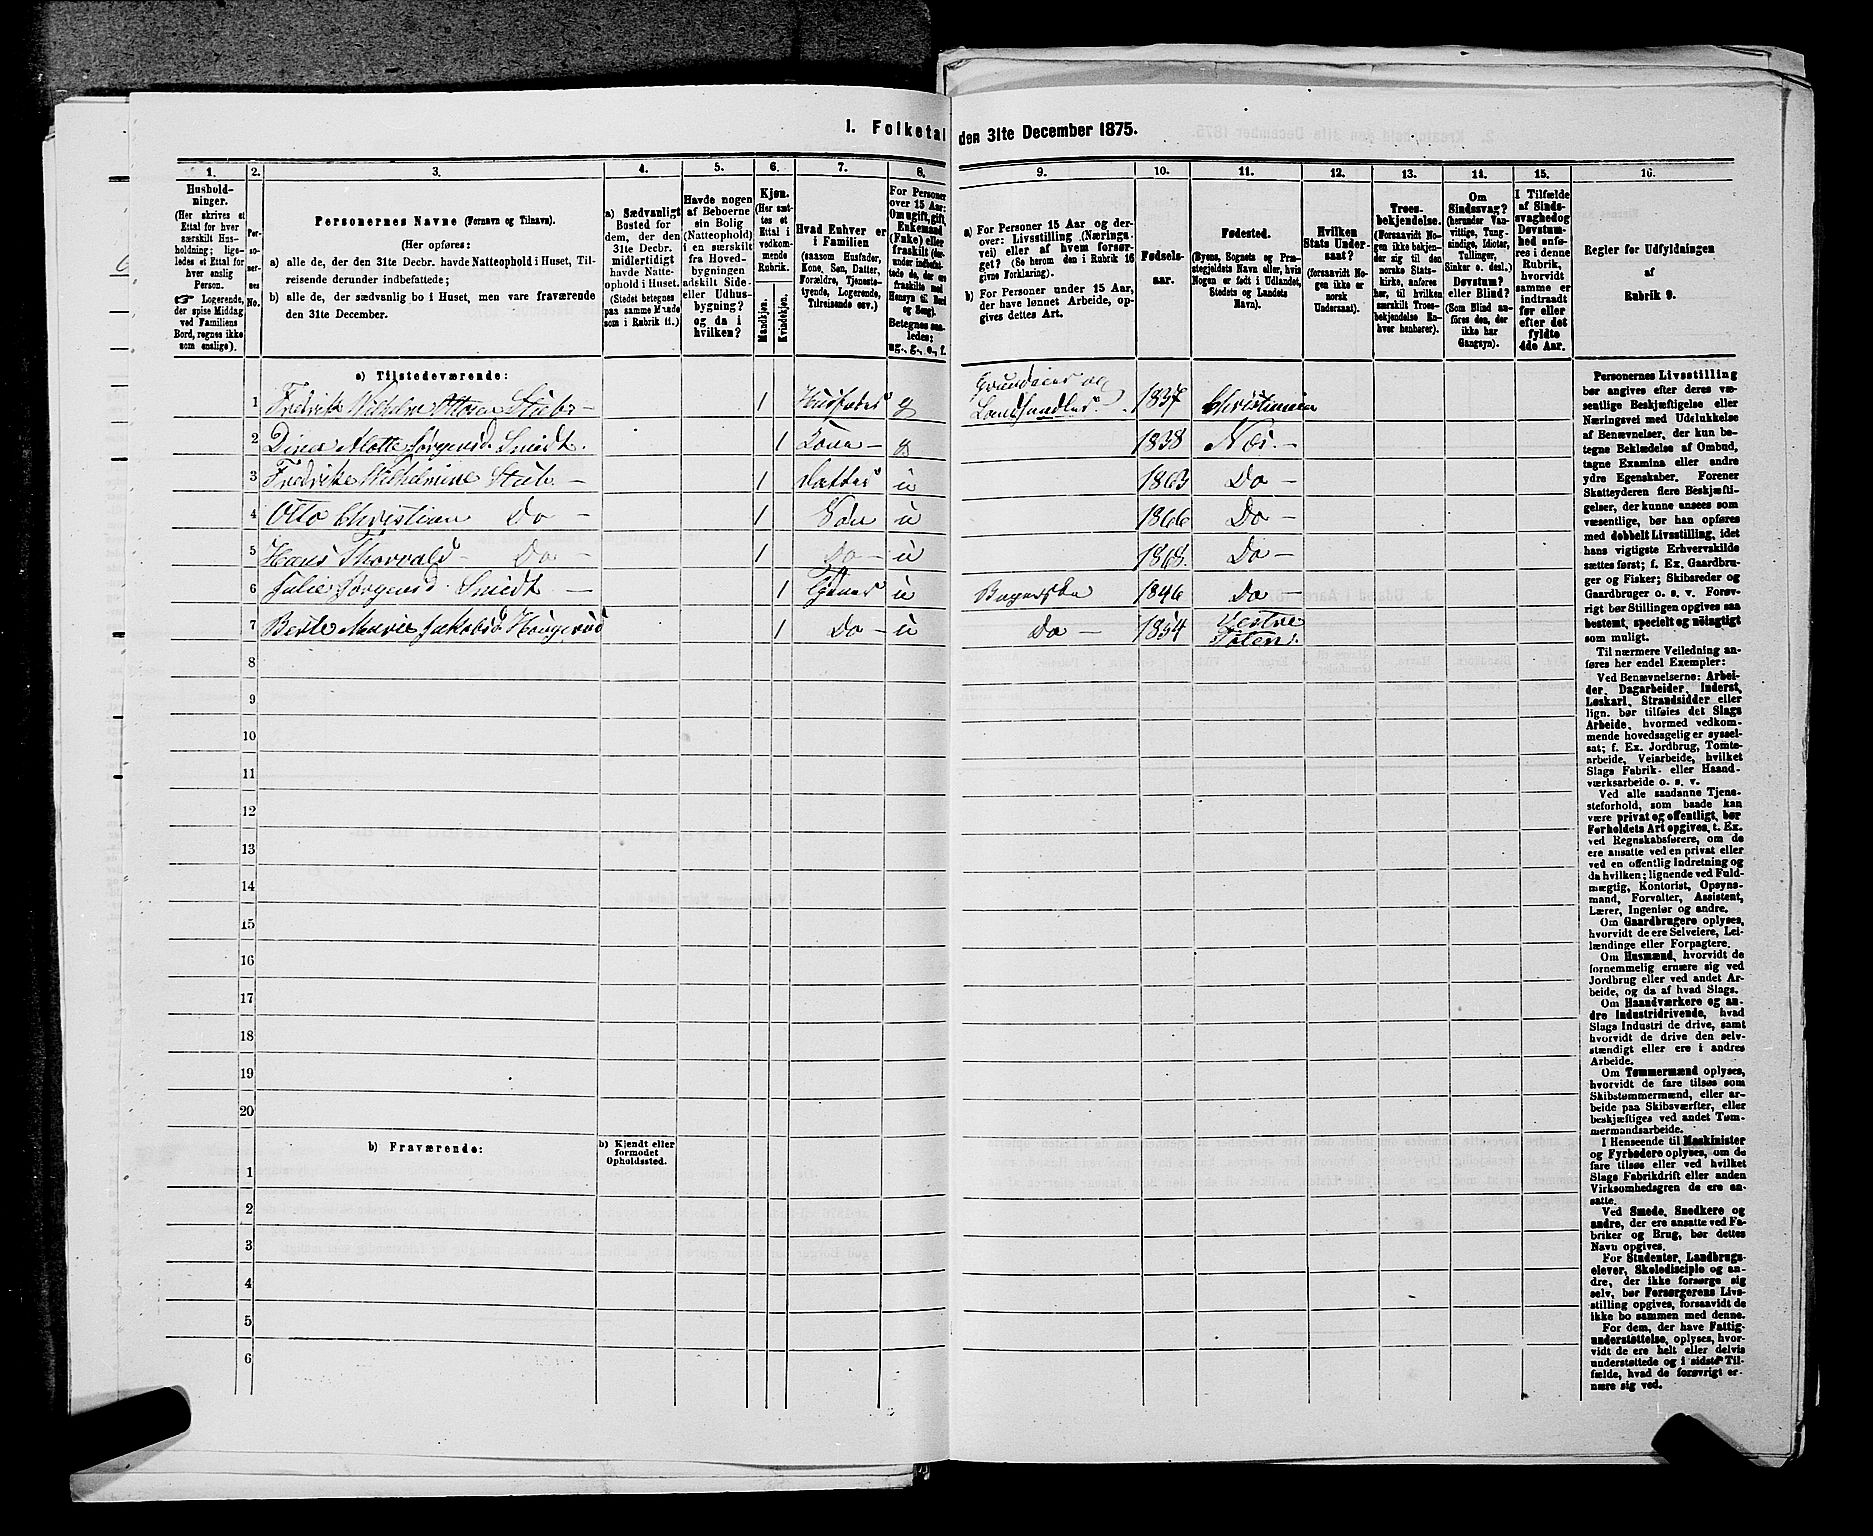 1. Folketal
den 31te December 1875.
1.
2.
3.
4.
5.
6.
7.
8.
9.
10.
11.
12.
13.
14.
15.
16.
Hushold-
ninger.
(Her skrives et
Ettal for hver
særskilt Hus-
holdning; lige-
ledes et Ettal for
hver enslig
Person.
☞ Logerende,
der spise Middag
ved Familiens
Bord, regnes ikke
som enslige).
Per-
so-
ner-
nes
No.
Personernes Navne (Fornavn og Tilnavn).
(Her opføres:
a) alle de, der den 31te Decbr. havde Natteophold i Huset, Til-
reisende derunder indbefattede;
b) alle de, der sædvanlig bo i Huset, men vare fraværende
den 31te December.
a) Sædvanligt
Bosted for
dem, der den
31te Decbr.
midlertidigt
havde Natte-
ophold i Huset.
(Stedet betegnes
paa samme Maade
som i Rubrik 11.)
Havde nogen
af Beboerne
sin Bolig
(Natteophold)
i en særskilt
fra Hoved-
bygningen
adskilt Side-
eller Udhus-
bygning?
og da i
hvilken?
Kjøn.
(Her sæt-
tes et
Ettal i
vedkom-
mende
Rubrik.
Mandkjøn.
Kvindekjøn.
Hvad Enhver er
i Familien
(saasom Husfader,
Kone, Søn, Datter,
Forældre, Tjeneste-
tyende, Logerende,
Tilreisende osv.)
For Personer
over 15 Aar:
Om ugift, gift,
Enkemand
(Enke) eller
fraskilt
Betegnes saa-
ledes:
ug., g., e., f.
a) For Personer 15 Aar og der-
over: Livsstilling (Nærings-
vei) eller af hvem forsør-
get? (Se herom den i Rubrik 16
givne Forklaring).
b) For Personer under 15 Aar,
der have lønnet Arbeide, op-
gives dettes Art.
Fødsels-
aar.
Fødested.
(Byens, Sognets og Præ-
stegjeldets Navn eller, hvis
Nogen er født i Udlandet,
Stedets og Landets
Navn).
Hvilken
Stats Under-
saat?
(forsaavidt No-
gen ikke er
norsk
Undersaat).
Troes-
bekjendelse.
(Forsaavidt No-
gen ikke bekjen-
der sig til den
norske Stats-
kirke, anføres
her, til hvilken
særskilt Troes-
bekjendelse En-
hver henhører).
Om
Sindssvag?
(herunder Van-
vittige, Tung-
sindige, Idioter,
Tullinger,
Sinker o. desl.)
Døvstum?
eller Blind?
(Som Blind an-
føres den, der
ikke har
Gangsyn).
I Tilfælde
af Sinds-
svaghed og
Døvstum-
hed anfø-
res i denne
Rubrik,
hvorvidt
samme er
indtraadt
før eller
efter det
fyldte
4de Aar.
Regler for Udfyldningen
af
Rubrik 9.
a) Tilstedeværende:
1 Fredrik Wilhelm Ottosen Stub – 1 Husfader g Grundeier og
Landhandler. 1837 Christiania
2 Dina Mette Jørgensd Smidt. 1 Kone – g 1838 Næs. –
3 Fredrikke Wilhelmine Stub. – 1 Datter u 1863 Do –
4 Otto Christian Do – 1 Søn u 1866 Do –
5 Hans Thorvald – Do – 1 Do – u 1868. Do –
6 Julie Jørgensd. Smidt – 1 u 1846 Do –
7 Berte Marie Jakobsd Haugerud 1 Do – u Do – 1854 Vestre
Toten.
8
9
10
11
12
13
14
15
16
17
18
19
20
b) Fraværende:
b) Kjendt eller
formodet
Opholdssted.
1
2
3
4
5
6
Personernes Livsstilling
bør angives efter deres væ-
sentlige Beskjæftigelse eller
Næringsvei med Udelukkelse
af Benævnelser, der kun be-
tegne Beklædelse af Ombud,
tagne Examina eller andre
ydre Egenskaber. Forener
Skatteyderen flere Beskjæfti-
gelser, der kunne ansees som
væsentlige, bør han opføres
med dobbelt Livsstilling, idet
hans vigtigste Erhvervskilde
sættes først; f. Ex. Gaardbru-
ger og Fisker; Skibsreder og
Gaardbruger o. s. v. Forøv-
rigt bør Stillingen opgives saa
bestemt, specielt og nøiagtigt
som muligt.
Til nærmere Veiledning an-
føres her endel Exempler:
Ved Benævnelserne: Arbei-
der, Dagarbeider, Inderst,
Løskarl, Strandsidder eller
lign. bør tilføies det Slags
Arbeide, hvormed vedkom-
mende hovedsagelig er syssel-
sat; f. Ex. Jordbrug, Tomte-
arbeide, Veiarbeide, hvilket
Slags Fabrik- eller Haand-
værksarbeide o. s. v.
Ved alle saadanne Tjene-
steforhold, som baade kan
være privat og offentligt, bør
Forholdets Art opgives, t. Ex.
ved Regnskabsførere, om de
ere ansatte ved en privat eller
ved en offentlig Indretning og
da hvilken; lignende ved Fuld-
mægtig, Kontorist, Opsyns-
mand, Forvalter, Assistent,
Lærer, Ingeniør og andre.
Om Gaardbrugere oplyses,
hvorvidt de ere Selveiere, Lei-
lændinge eller Forpagtere.
Om Husmænd, hvorvidt de
fornemmelig ernære sig ved
Jordbrug eller ved andet Ar-
beide, og da af hvad Slags.
Om Haandværkere og an-
dre Industridrivende, hvad
Slags Industri de drive, samt
hvorvidt de drive den selv-
stændigt eller ere i andres
Arbeide.
Om Tømmermænd oplyses,
hvorvidt de fare tilsøs som
Skibstømmermænd, eller ar-
beide paa Skibsværfter, eller
beskjæftiges ved andet Tøm-
mermandsarbeide.
I Henseende til Maskinister
og Fyrbødere oplyses, om de
fare tilsøs eller ved hvilket
Slags Fabrikdrift eller anden
Virksomhedsgren de ere an-
satte.
Ved Smede, Snedkere og
andre, der ere ansatte ved Fa-
briker og Brug, bør dettes
Navn opgives.
For Studenter, Landbrugs-
elever, Skoledisciple og an-
dre, der ikke forsørge sig
selv, bør Forsørgerens Livs-
stilling opgives, forsaavidt de
ikke bo sammen med denne.
For dem, der have Fattig-
understøttelse, oplyses, hvor-
vidt de ere helt eller delvis
understøttede og i sidste Til-
fælde, hvad de forøvrigt er-
nære sig ved.